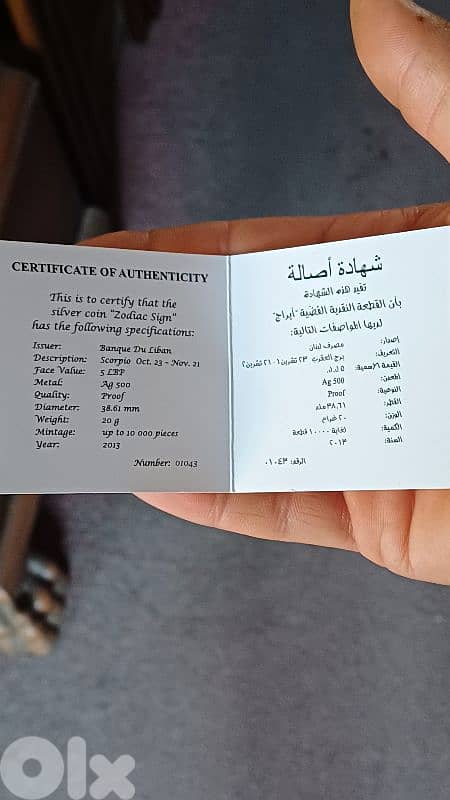 CERTIFICATE OF AUTHENTICITY
This is to certify that the
silver coin "Zodiac Sign"
has the following specifications:
Issuer: Banque Du Liban
Description: Scorpio Oct. 23 - Nov. 21
Face Value: 5 LBP
Metal: Ag 500
Quality: Proof
Diameter: 38.61 mm
Weight: 20 g
Mintage: up to 10 000 pieces
Year: 2013
Number: 01043
شهادة أصالة
تفيد هذه الشهادة
بأن القطعة النقدية الفضية "أبراج"
لديها المواصفات التالية:
إصدار: مصرف لبنان
التعريف: برج العقرب ٢٣ تشرين١ - ٢١ تشرين٢
القيمة الإسمية: ٥ ل.ل.
المعدن: Ag 500
النوعية: Proof
القطر: ٣٨,٦١ ملم
الوزن: ٢٠ غرام
الكمية: لغاية ١٠٠٠٠ قطعة
السنة: ٢٠١٣
الرقم: ٠١٠٤٣
OLX